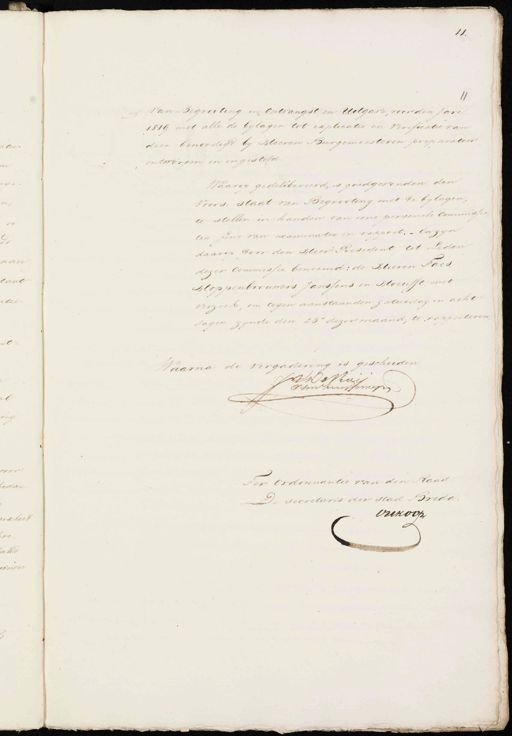 11.
11
van Begrooting in Ontvangst en Uitgave, voor den Jare
1819 met alle de bylagen tot explicatie en verificatie van
dien benoodigt by Heeren Burgemeesteren preparatoir
ontworpen en ingesteld.
Waarop gedelibereerd, is goedgevonden den
voors. staat van Begrooting met de bylagen,
te stellen in handen van eene personele Commissie
ten fine van examinatie en rapport. - En zyn
daartoe door den Heer President tot Leden
dezer Commissie benoemd: de Heeren
Stoppenbrouwers, Janssens en met
verzoek, om tegen aanstaanden Zaturdag in acht
dagen zynde den 25e dezer maand, te rapporteren
Waarna de vergadering is gescheiden
Ter Ordonnantie van den Raad
De Secretaris der stad Breda